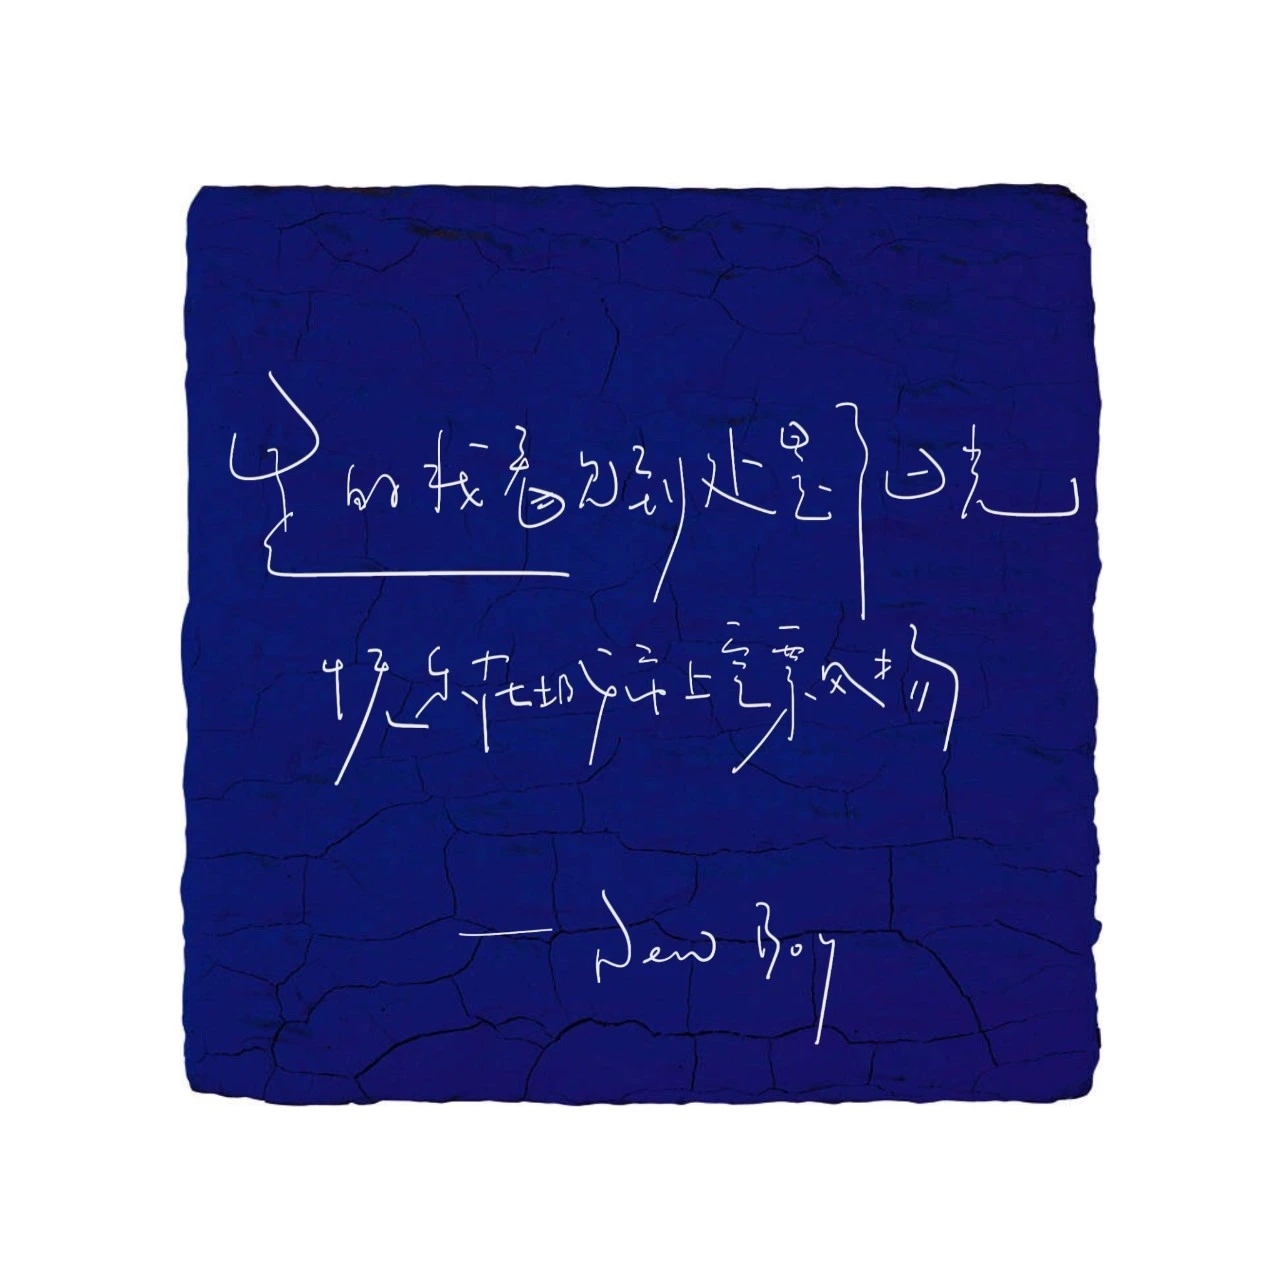 是的我看见到处是阳光
快乐在城市上空飘扬
— New Boy